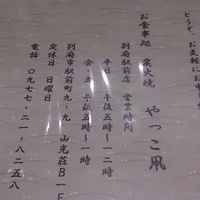 どうぞ、お気軽にお申
お食事処 炭火焼 やっこ凧
別府駅前店 営業時間
平日 午後五時〜一二時
金・土 午後五時〜一時
別府市駅前町九ー九 山光荘B一F
定休日 日曜日
電話 〇九七七ー二一ー八二五八